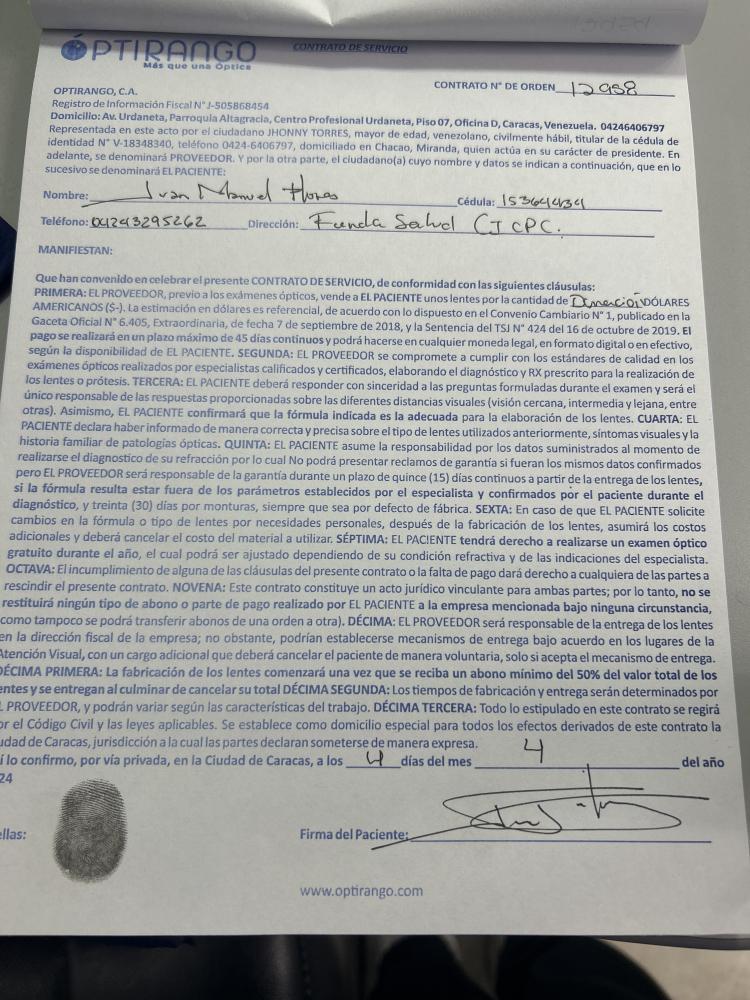 ÓPTIRANGO
Más que una Óptica
CONTRATO DE SERVICIO
CONTRATO N° DE ORDEN 12958
OPTIRANGO, C.A.
Registro de Información Fiscal N° J-505868454
Domicilio: Av. Urdaneta, Parroquia Altagracia, Centro Profesional Urdaneta, Piso 07, Oficina D, Caracas, Venezuela. 04246406797
Representada en este acto por el ciudadano JHONNY TORRES, mayor de edad, venezolano, civilmente hábil, titular de la cédula de
identidad N° V-18348340, teléfono 0424-6406797, domiciliado en Chacao, Miranda, quien actúa en su carácter de presidente. En
adelante, se denominará PROVEEDOR. Y por la otra parte, el ciudadano(a) cuyo nombre y datos se indican a continuación, que en lo
sucesivo se denominará EL PACIENTE:
Nombre: Ivan Manuel Flores Cédula: 15364434
Teléfono: 04243295262 Dirección: Funda Salud CICPC.
MANIFIESTAN:
Que han convenido en celebrar el presente CONTRATO DE SERVICIO, de conformidad con las siguientes cláusulas:
PRIMERA: EL PROVEEDOR, previo a los exámenes ópticos, vende a EL PACIENTE unos lentes por la cantidad de Donación DÓLARES
AMERICANOS ($-). La estimación en dólares es referencial, de acuerdo con lo dispuesto en el Convenio Cambiario N° 1, publicado en la
Gaceta Oficial N° 6.405, Extraordinaria, de fecha 7 de septiembre de 2018, y la Sentencia del TSJ N° 424 del 16 de octubre de 2019. El
pago se realizará en un plazo máximo de 45 días continuos y podrá hacerse en cualquier moneda legal, en formato digital o en efectivo,
según la disponibilidad de EL PACIENTE. SEGUNDA: EL PROVEEDOR se compromete a cumplir con los estándares de calidad en los
exámenes ópticos realizados por especialistas calificados y certificados, elaborando el diagnóstico y RX prescrito para la realización de
los lentes o prótesis. TERCERA: EL PACIENTE deberá responder con sinceridad a las preguntas formuladas durante el examen y será el
único responsable de las respuestas proporcionadas sobre las diferentes distancias visuales (visión cercana, intermedia y lejana, entre
otras). Asimismo, EL PACIENTE confirmará que la fórmula indicada es la adecuada para la elaboración de los lentes. CUARTA: EL
PACIENTE declara haber informado de manera correcta y precisa sobre el tipo de lentes utilizados anteriormente, síntomas visuales y la
historia familiar de patologías ópticas. QUINTA: EL PACIENTE asume la responsabilidad por los datos suministrados al momento de
realizarse el diagnostico de su refracción por lo cual No podrá presentar reclamos de garantía si fueran los mismos datos confirmados
pero EL PROVEEDOR será responsable de la garantía durante un plazo de quince (15) días continuos a partir de la entrega de los lentes,
si la fórmula resulta estar fuera de los parámetros establecidos por el especialista y confirmados por el paciente durante el
diagnóstico, y treinta (30) días por monturas, siempre que sea por defecto de fábrica. SEXTA: En caso de que EL PACIENTE solicite
cambios en la fórmula o tipo de lentes por necesidades personales, después de la fabricación de los lentes, asumirá los costos
adicionales y deberá cancelar el costo del material a utilizar. SÉPTIMA: EL PACIENTE tendrá derecho a realizarse un examen óptico
gratuito durante el año, el cual podrá ser ajustado dependiendo de su condición refractiva y de las indicaciones del especialista.
OCTAVA: El incumplimiento de alguna de las cláusulas del presente contrato o la falta de pago dará derecho a cualquiera de las partes a
rescindir el presente contrato. NOVENA: Este contrato constituye un acto jurídico vinculante para ambas partes; por lo tanto, no se
restituirá ningún tipo de abono o parte de pago realizado por EL PACIENTE a la empresa mencionada bajo ninguna circunstancia,
como tampoco se podrá transferir abonos de una orden a otra). DÉCIMA: EL PROVEEDOR será responsable de la entrega de los lentes
en la dirección fiscal de la empresa; no obstante, podrían establecerse mecanismos de entrega bajo acuerdo en los lugares de la
Atención Visual, con un cargo adicional que deberá cancelar el paciente de manera voluntaria, solo si acepta el mecanismo de entrega.
DÉCIMA PRIMERA: La fabricación de los lentes comenzará una vez que se reciba un abono mínimo del 50% del valor total de los
entes y se entregan al culminar de cancelar su total DÉCIMA SEGUNDA: Los tiempos de fabricación y entrega serán determinados por
L PROVEEDOR, y podrán variar según las características del trabajo. DÉCIMA TERCERA: Todo lo estipulado en este contrato se regirá
or el Código Civil y las leyes aplicables. Se establece como domicilio especial para todos los efectos derivados de este contrato la
udad de Caracas, jurisdicción a la cual las partes declaran someterse de manera expresa.
í lo confirmo, por vía privada, en la Ciudad de Caracas, a los 4 días del mes 4 del año
24
ellas:
Firma del Paciente:
www.optirango.com